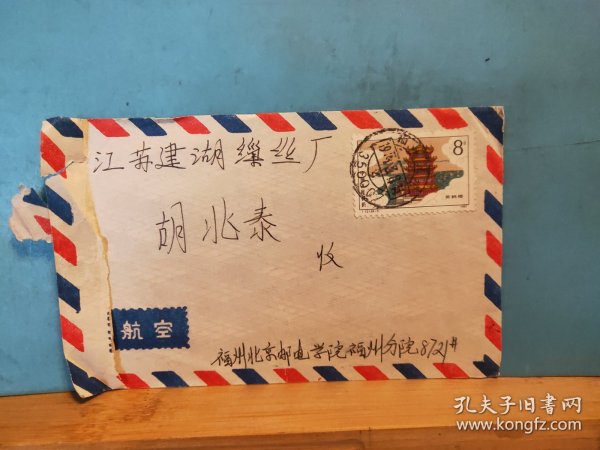 江苏建湖缫丝厂
8分
胡兆泰
收
航空
福州北京邮电学院福州分院8721#
孔夫子旧书网
www.kongfz.com